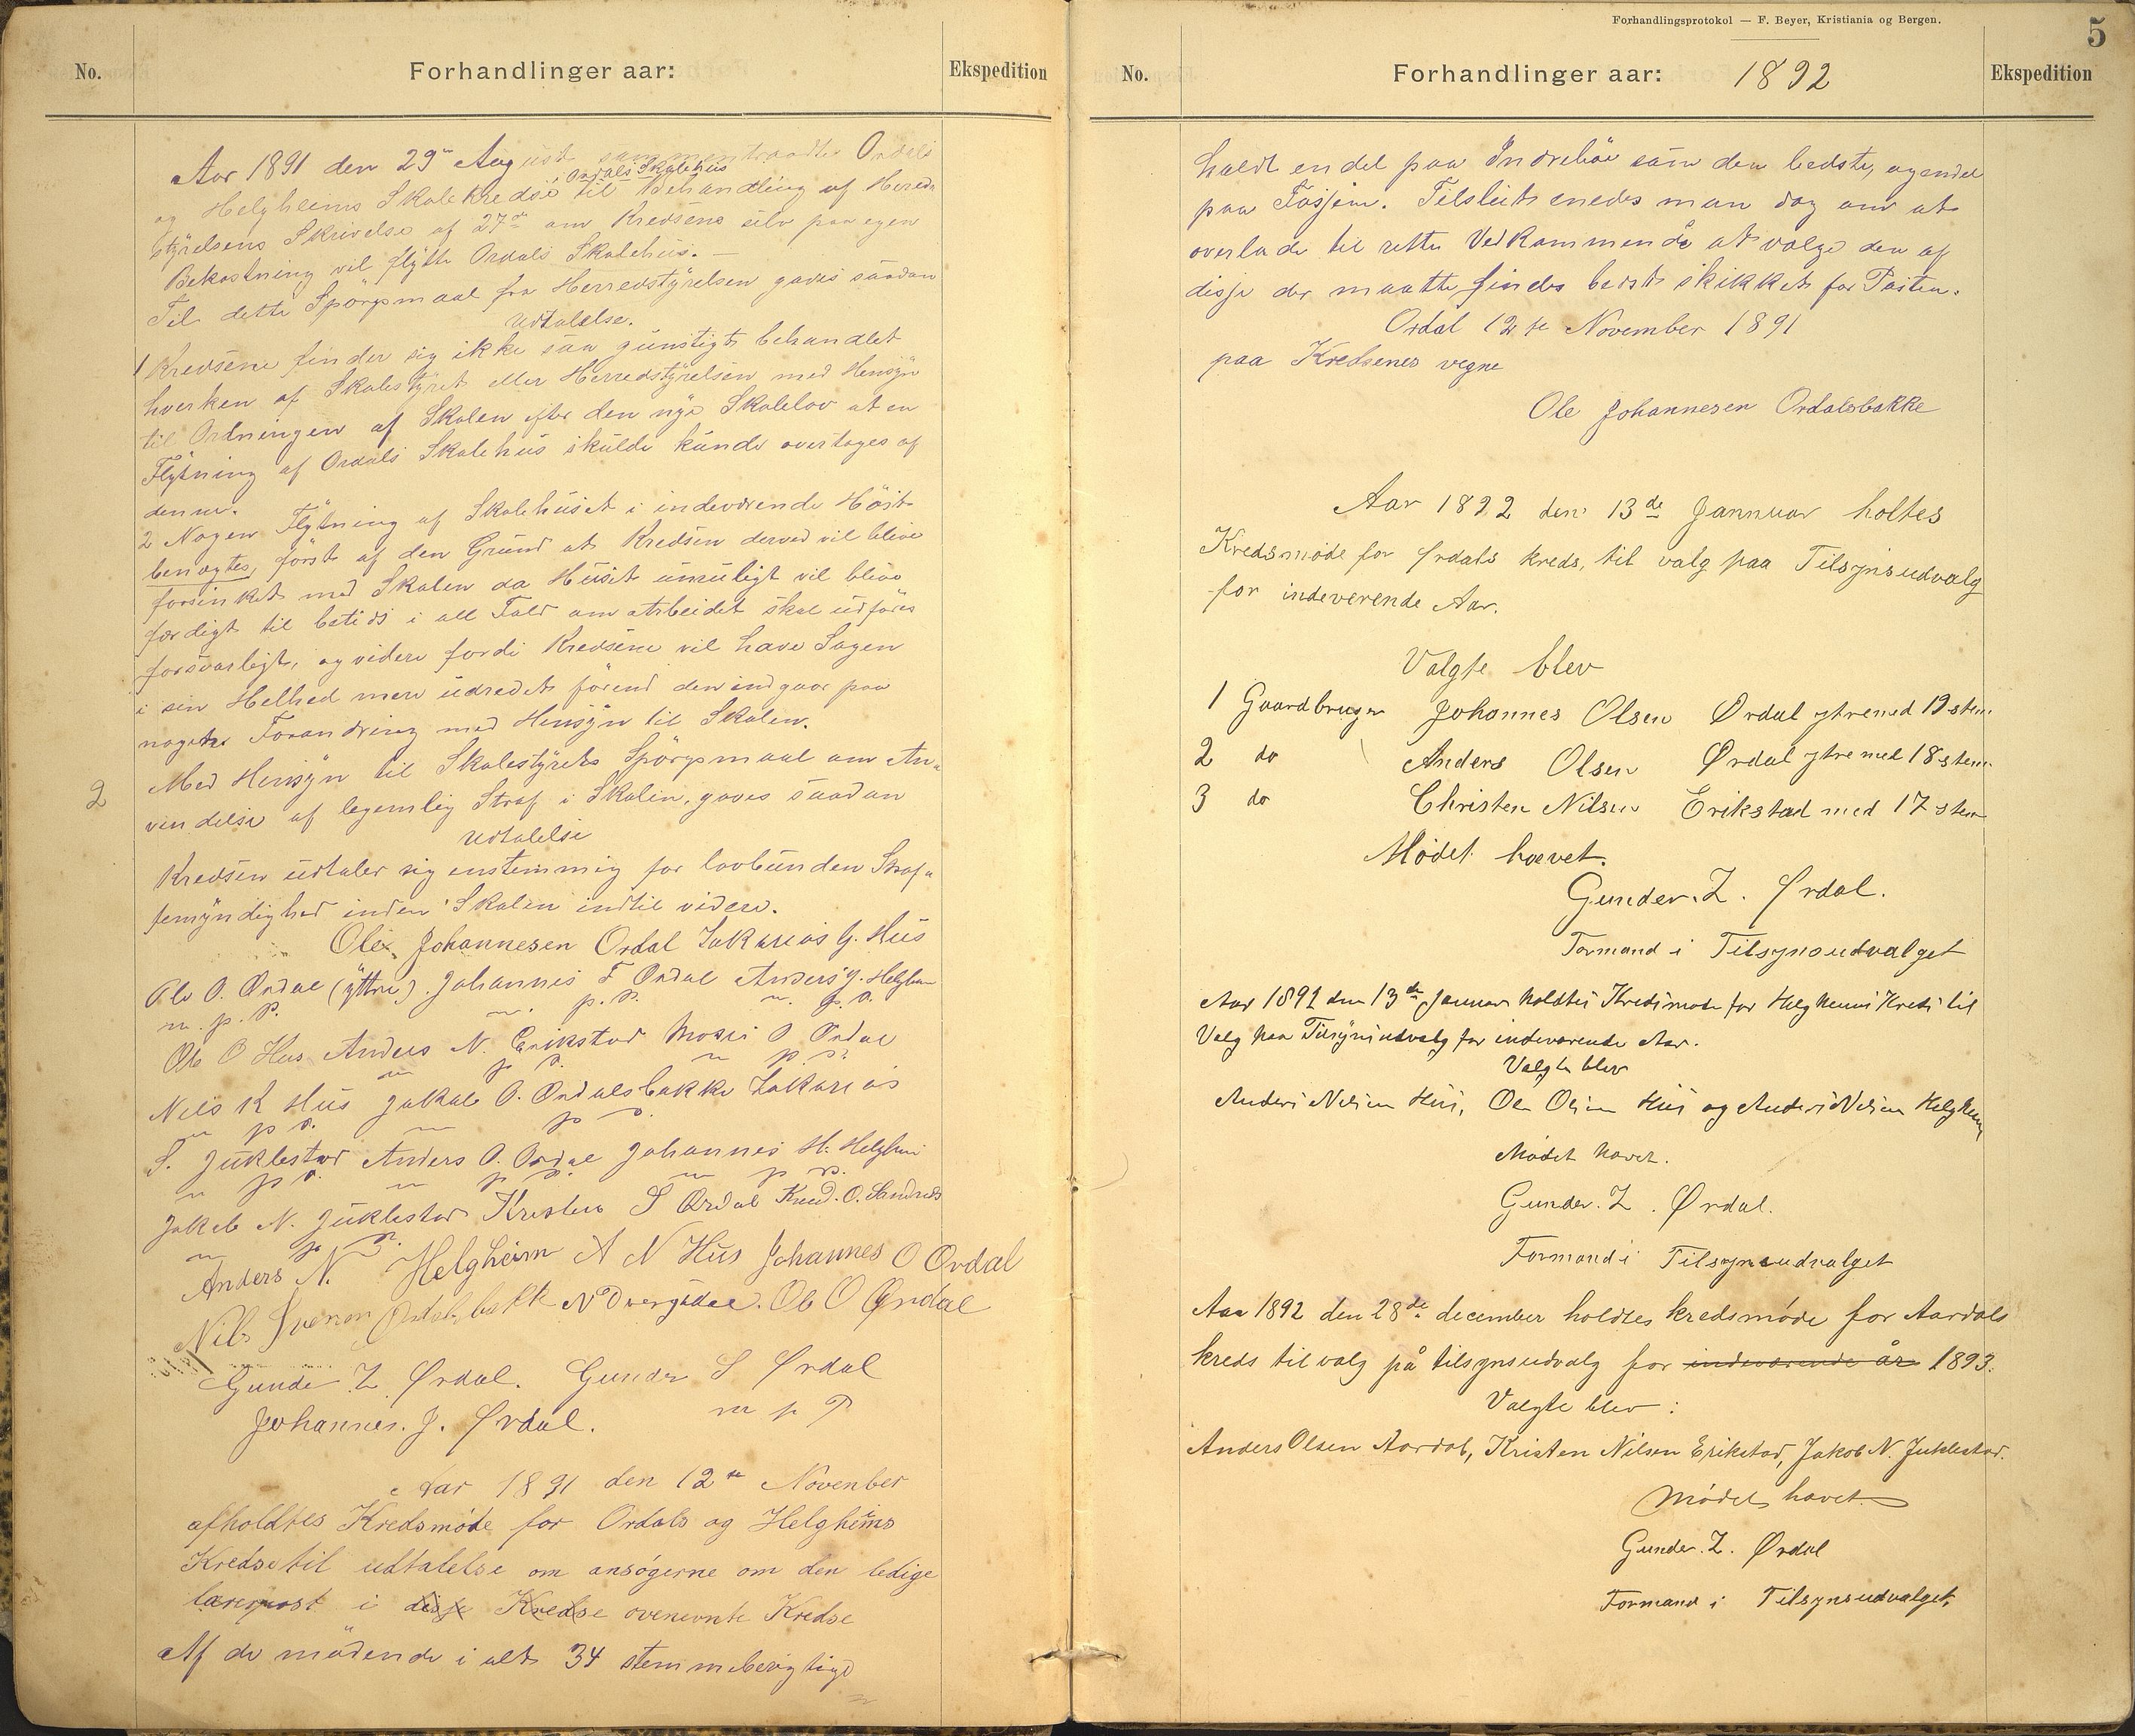 No.
Forhandlinger aar:
Ekspedition
Aar 1891 den 29de August sammentraadte Ordals
Ordals Skolehus
og Helgheims Skolekredse til Behandling af Herreds
styrelsens Skrivelse af 27de om Kredsens selv paa egen
Bekostning vil flytte Ordals Skolehus. —
Til dette Spörgsmaal fra Herredstyrelsen gaves saadan
Udtalelse.
1 Kredsene finder sig ikke saa gunstigt behandlet
hverken af Skolestyret eller Herredstyrelsen med Hensyn
til Ordningen af Skolen efter den nye Skolelov at en
Flytning af Ordals Skolehus skulde kunde overtages af
denne.
2 Nogen Flytning af Skolehuset i indeværende Höst
benægtes, först af den Grund at Kredsen derved vil blive
forsinket med Skolen da Huset umuligt vil blive
færdigt til betids i all Fald om Arbeidet skal udföres
forsvarligt, og videre fordi Kredsene vil have Sagen
i sin Helhed mere udredet förend den indgaar paa
nogen Forandring med Hensyn til Skolen.
2
Med Hensyn til Skolestyrets Spörgsmaal om An-
vendelse af legemlig Straf i Skolen, gaves saadan
Udtalelse
Kredsen udtaler sig enstemmig for lovbunden Straf-
femyndighed inden Skolen indtil videre.
Ole Johannesen Ordal Zakarias G. Hus
Ole O. Ordal (yttre). Johannes F Ordal Anders J. Helgheim
m. p. P. m. p. P. m. p. P.
Ole O Hus Anders N. Erikstad Moses O Ordal
m p P. m p P.
Nils K Hus Jakob O. Ordalsbakke Zakarias
m p P. m p P.
S. Juklestad Anders O. Ordal Johannes H. Helgheim
m p P. m p P. m p P.
Jakob N. Juklestad Kristen S Ordal Knud. O. Sandnes
m p P.
Anders N. Helgheim A N Hus Johannes O Ordal
Nils Ivenen Ordalsbakk N Dvergsdal. Ole O Ordal
Gunder Z Ørdal. Gunder S Ørdal
Johannes. J. Ørdal. m p P
Aar 1891 den 12te November
afholdtes Kredsmöde for Ordals og Helgheims
Kredse til udtalelse om ansögerne om den ledige
lærerpost i disse Kredse ovenevnte Kredse
Af de mödende i alt 34 stemmeberigtige
Forhandlingsprotokol — F. Beyer, Kristiania og Bergen.
5
No.
Forhandlinger aar: 1892
Ekspedition
holdt endel paa Indreböe som den bedste, og endel
paa Fosjem. Tilslut enedes man dog om at
overlade til rette Vedkommende at vælge den af
disse der maatte findes bedst skikket for Posten.
Ordal 12te November 1891
paa Kredsenes vegne
Ole Johannesen Ordalsbakke
Aar 1892 den 13de Jannuar holtes
Kredsmöde for Ørdals kreds, til valg paa Tilsynsudvalg
for indeverende Aar.
Valgte blev
1 Gaardbruger Johannes Olsen Ørdal ytre med 19 stem.
2 do Anders Olsen Ørdal ytre med 18 stem.
3 do Christen Nilsen Erikstad med 17 stem
Mödet hævet.
Gunder. Z. Ørdal.
Formand i Tilsynsudvalget
Aar 1892 den 13de Januar holdtes Kredsmöde for Helgheims Kreds til
Valg paa Tilsynsudvalg for indeværende Aar.
Valgte blev
Anders Nilsen Hus, Ole Olsen Hus og Anders Nilsen Helgheim
Mödet hævet.
Gunder. Z. Ørdal.
Formand i Tilsynsudvalget
Aar 1892 den 28de december holdtes kredsmøde for Aardals
kreds til valg på tilsynsudvalg for indeværende år 1893.
Valgte blev:
Anders Olsen Aardal, Kristen Nilsen Erikstad, Jakob N. Juklestad.
Mødet hævet.
Gunder. Z. Ørdal
Formand i Tilsynsudvalget.